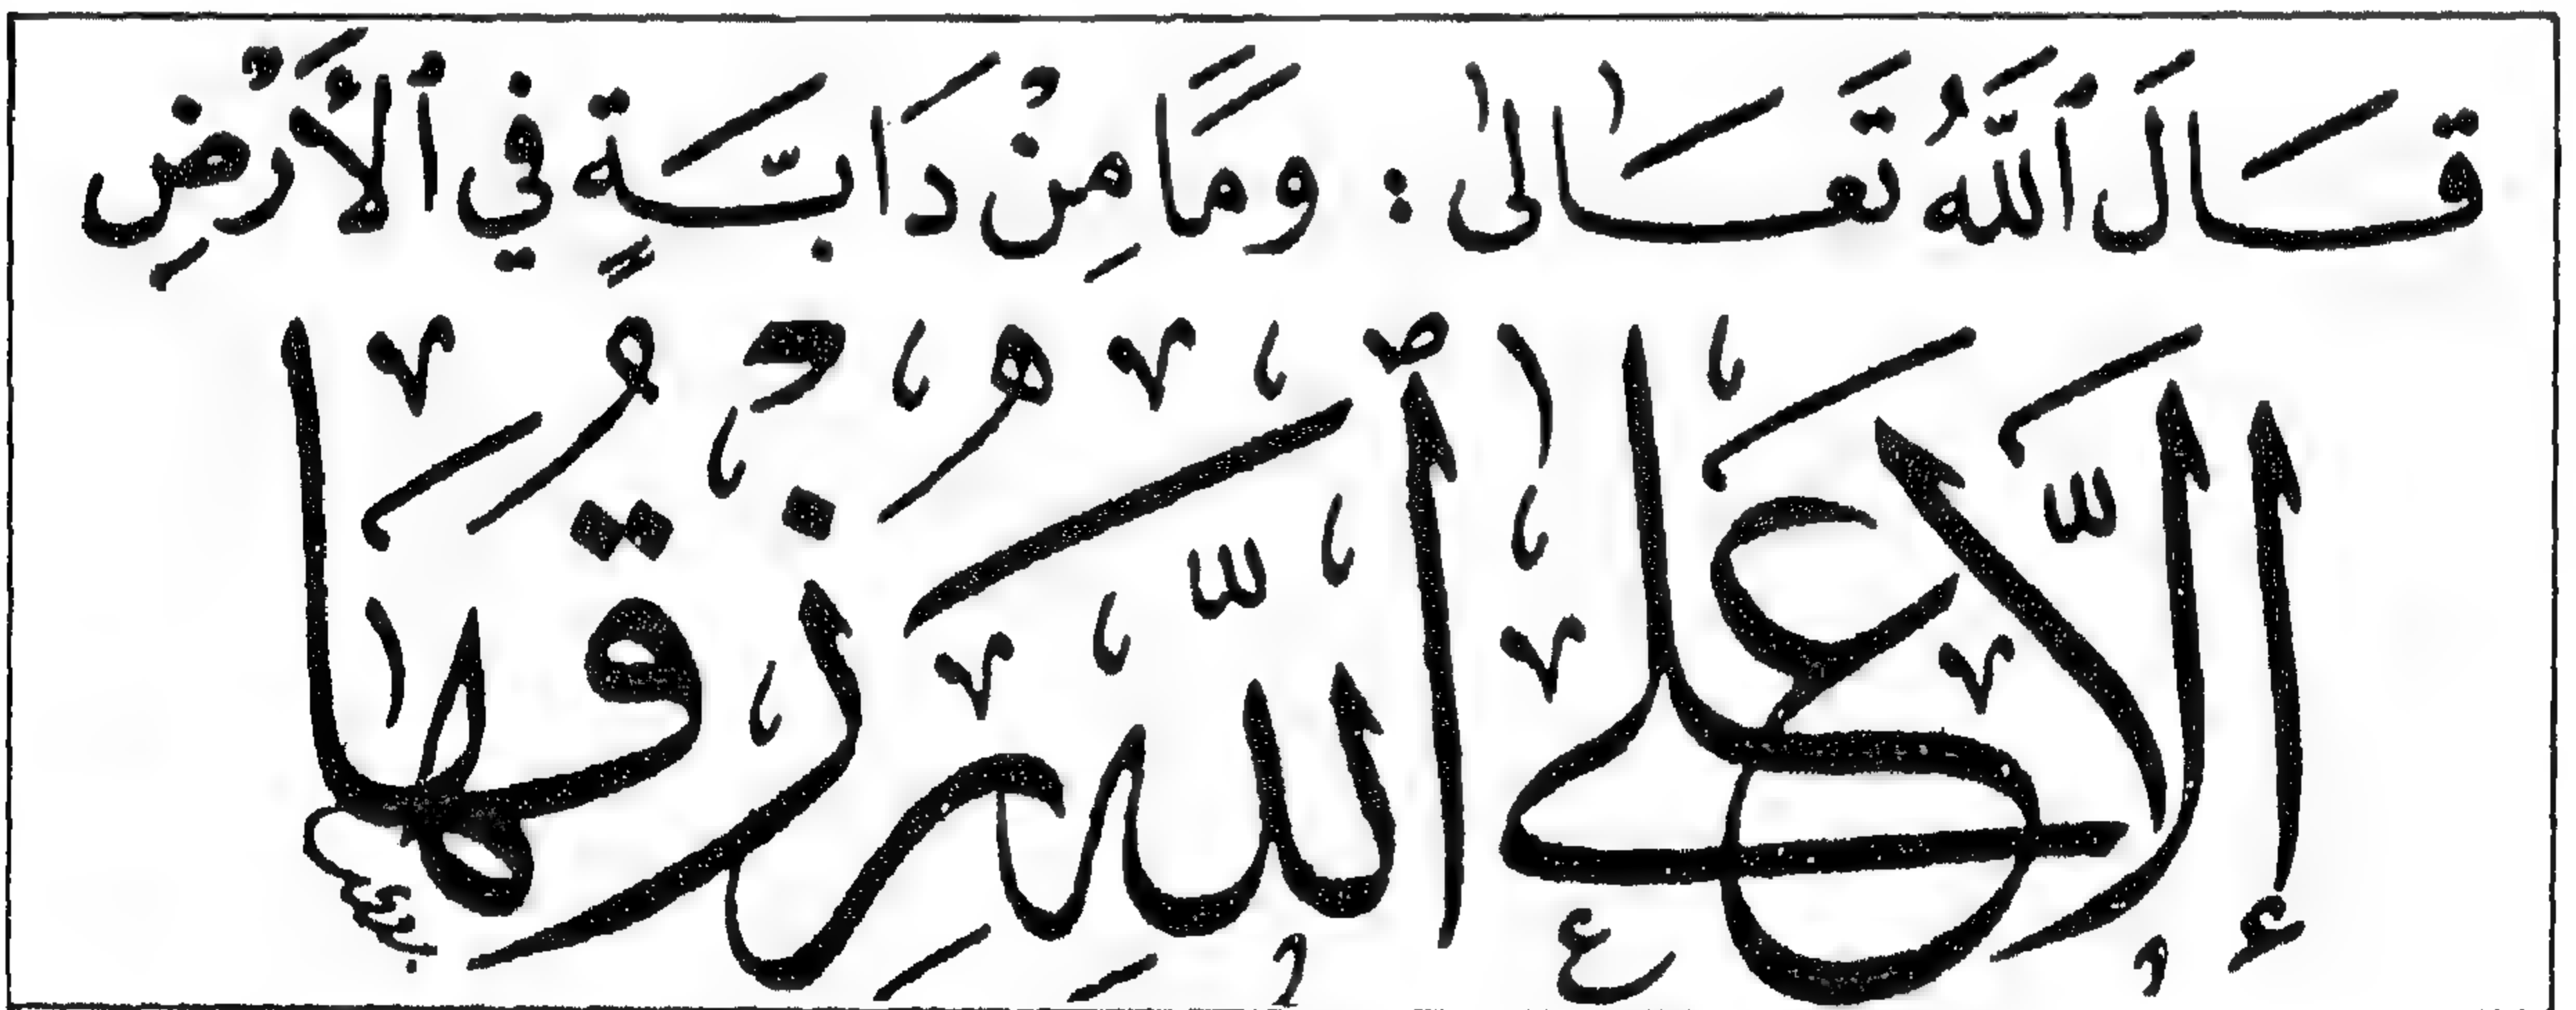 قَالَ ٱللَّهُ تَعَالىٰ : وَمَا مِنْ دَابَّةٍ فِي ٱلْأَرْضِ
إِلَّا عَلَى ٱللَّهِ رِزْقُهَا